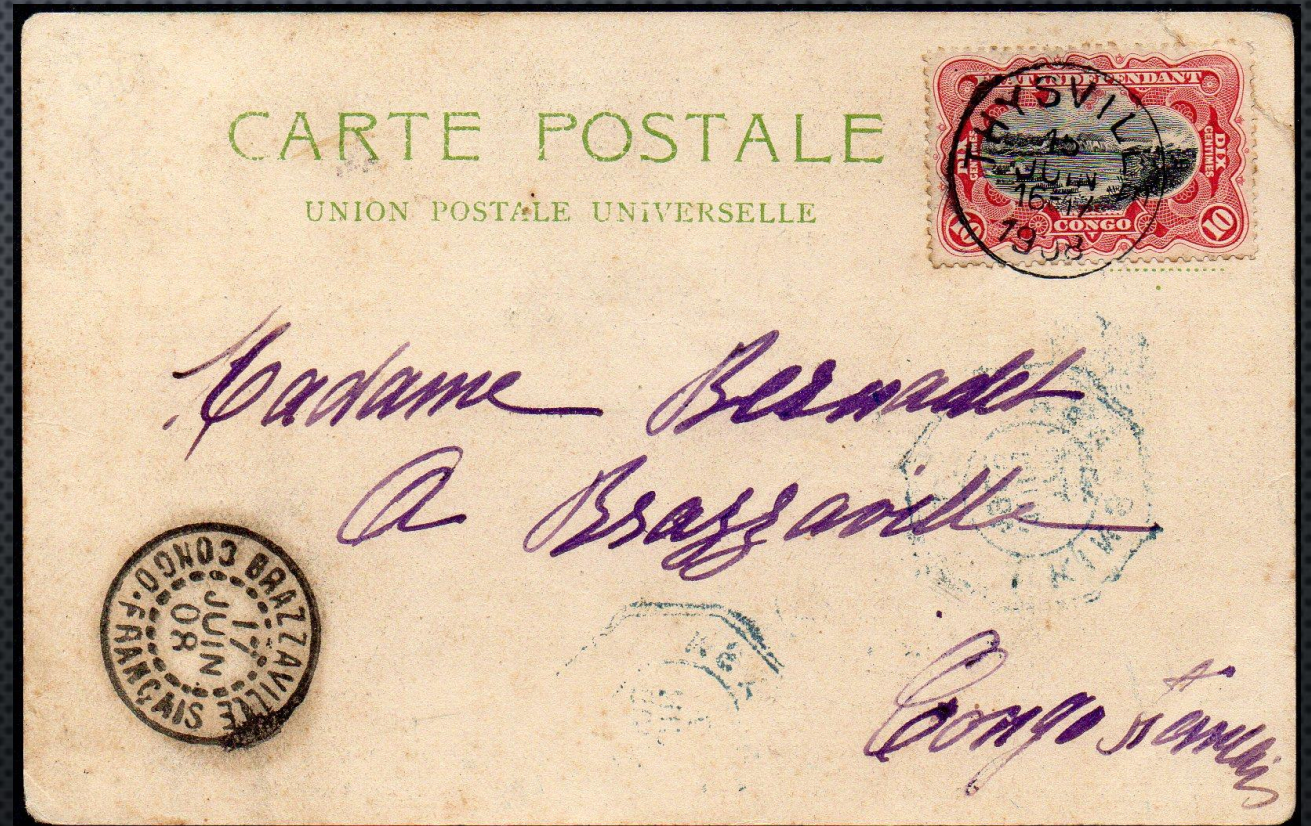 CARTE POSTALE
UNION POSTALE UNIVERSELLE
DIX CENTIMES
DIX CENTIMES
10 CONGO 10
THYSVILLE
15
JUIN
1908
Madame Bernadet
A Brazzaville
Congo Francais
BRAZZAVILLE
CONGO-FRANÇAIS
17
JUIN
08